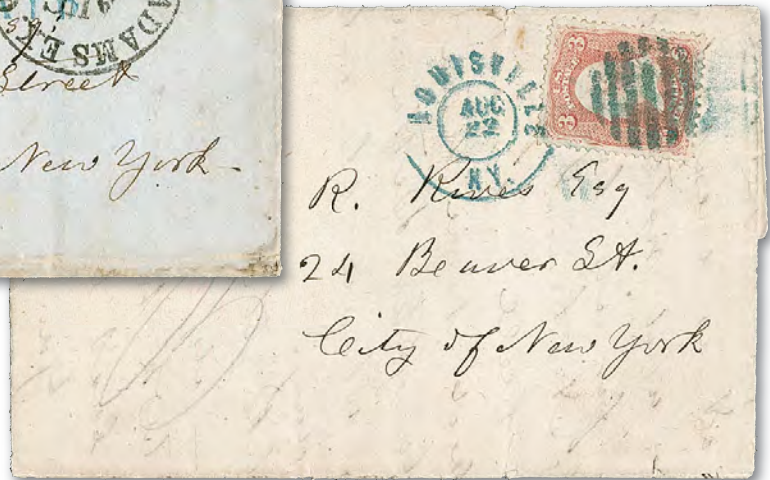 ADAMS EX
Street
New York
LOUISVILLE
AUG
22
KY.
3
3
R. Rives Esq
24 Beaver St.
City of New York